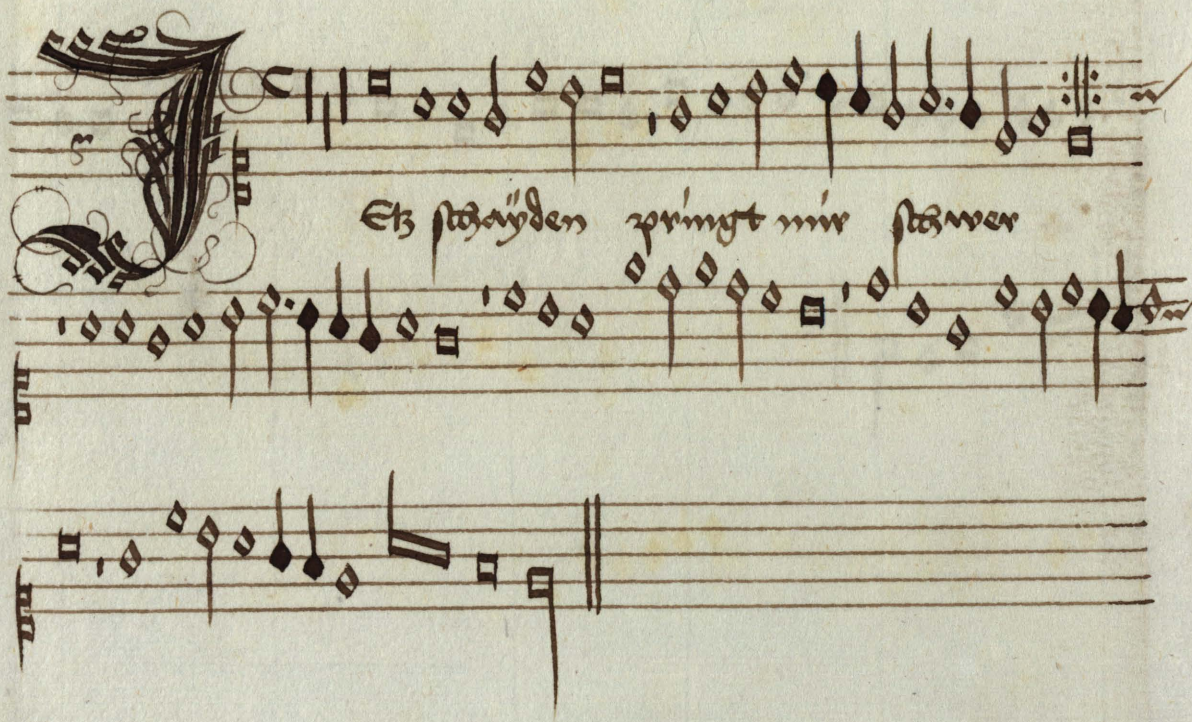 JEtz schaÿden pringt mir schwer